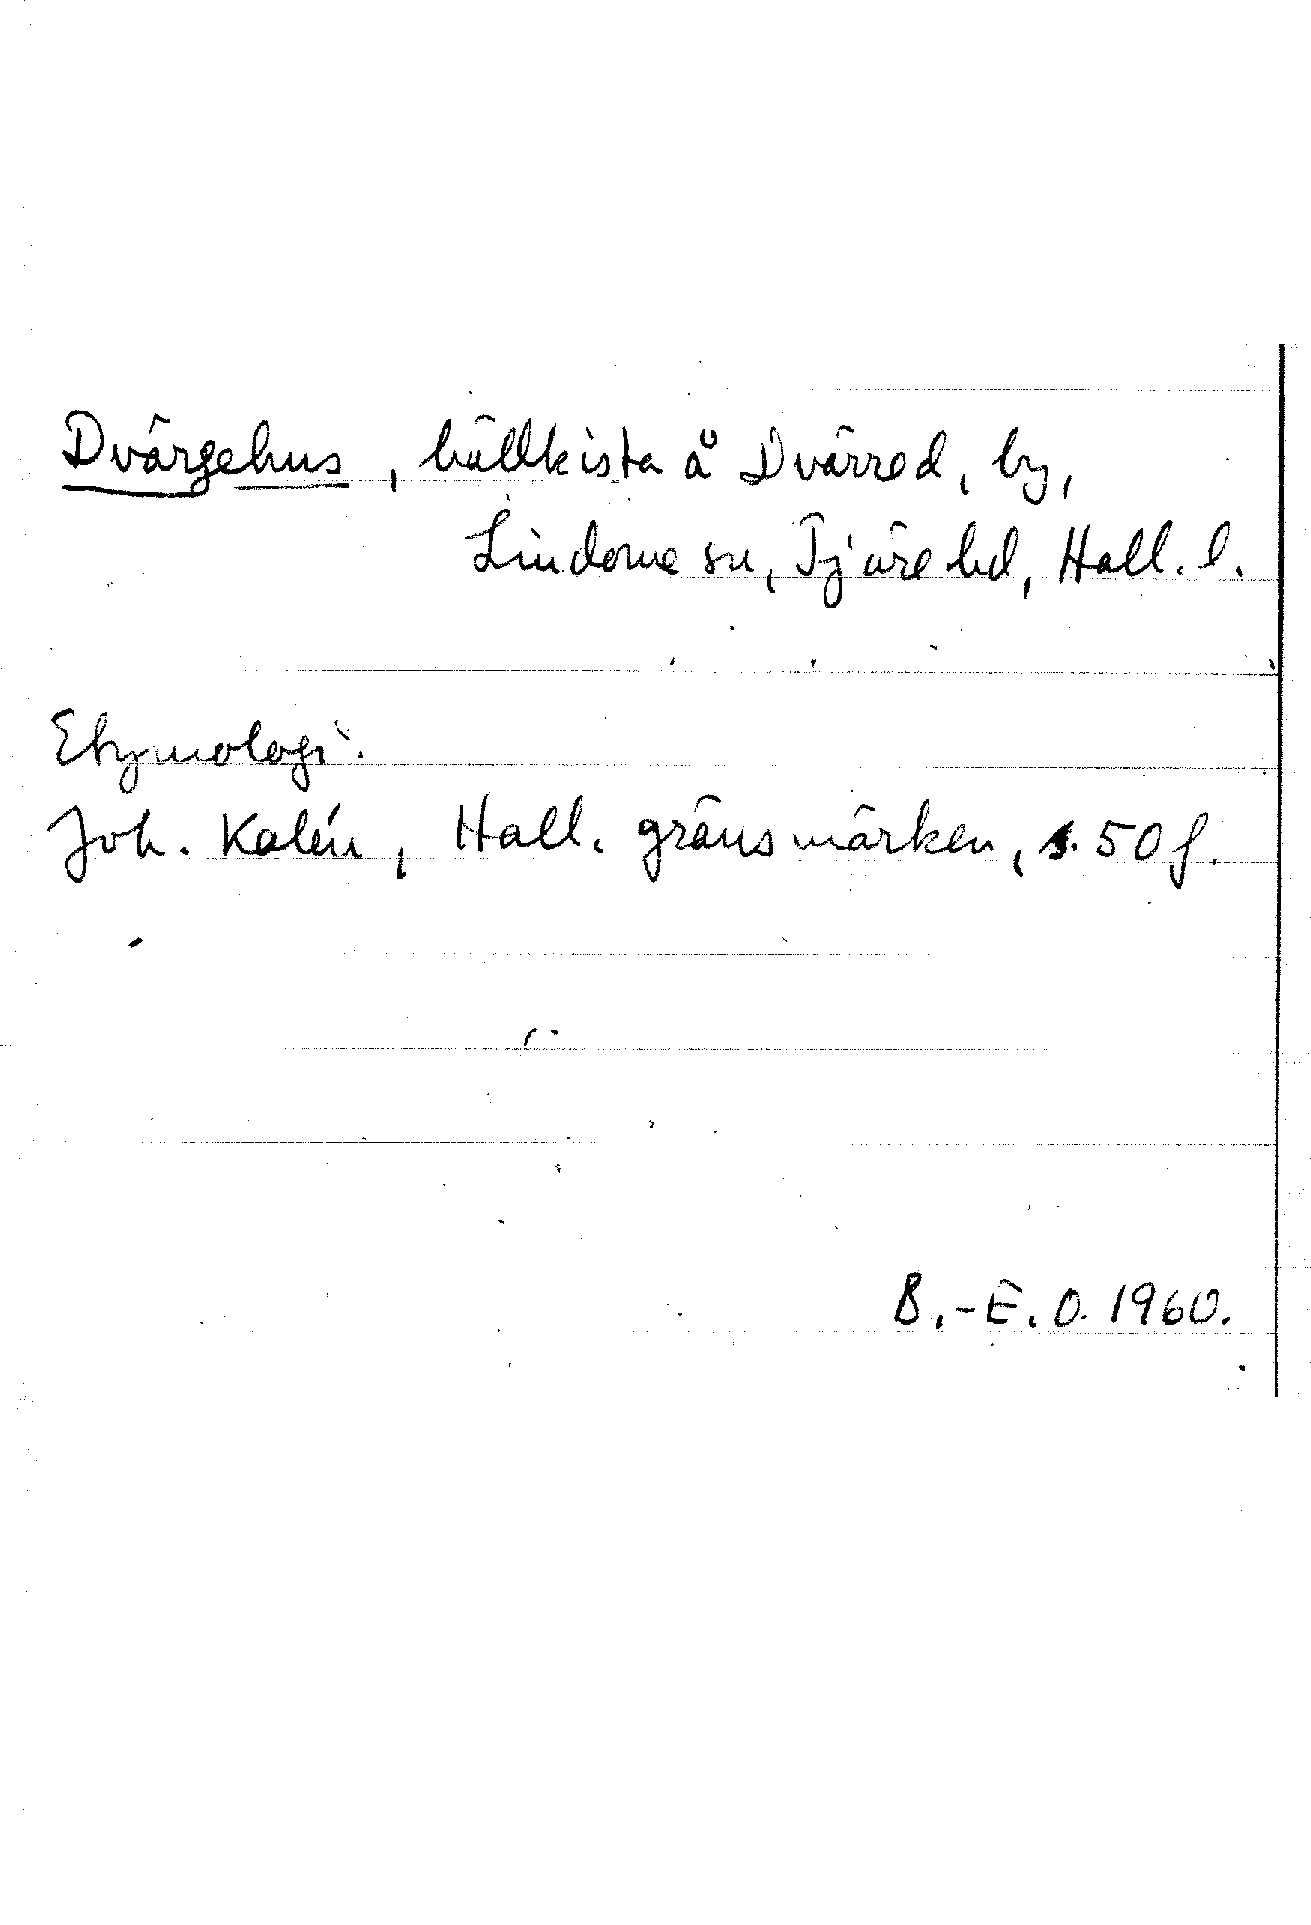 Dvärgehus, hällkista å Dvärred, by,
Lindome sn, Fjäre hd, Hall. l.
Etymologi.
Joh. Kalén, Hall. gränsmärken, s. 50 f.
B.-E. O. 1960.